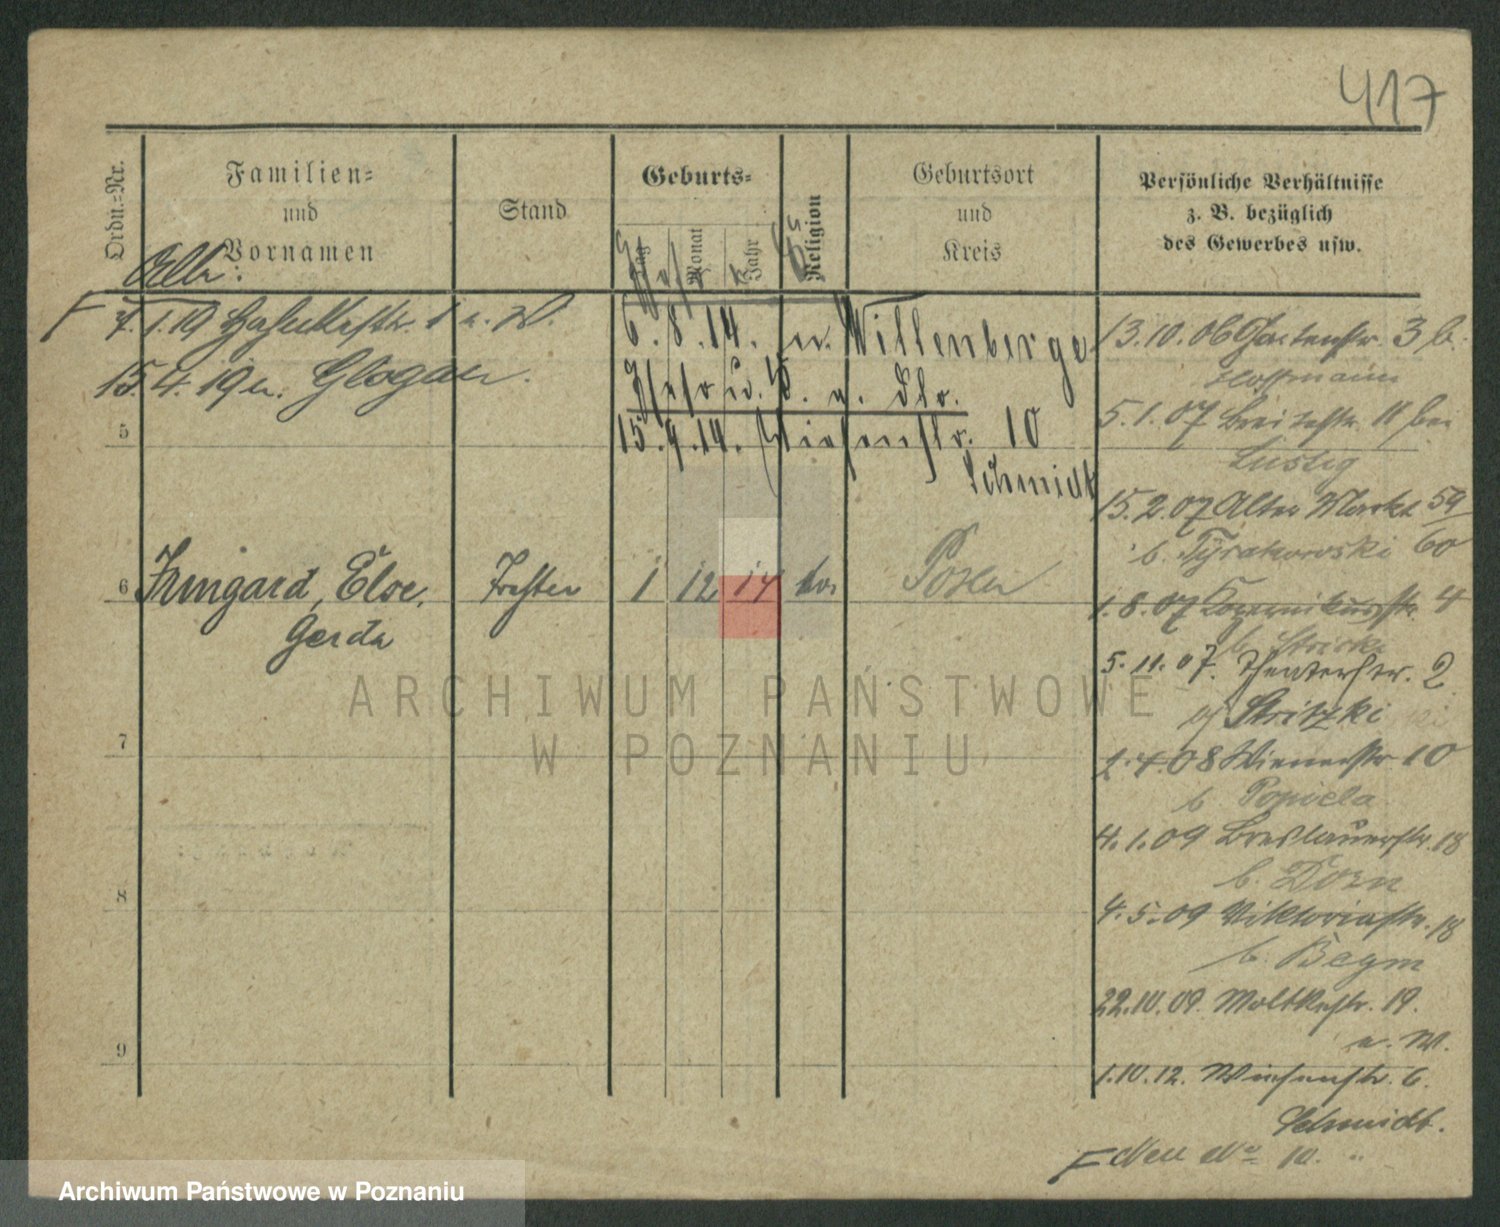 417
Ordn.-Nr.
Familien-
und
Vornamen
Stand
Geburts-
Tag
Monat
Jahr
Religion
Geburtsort
und
Kreis
Persönliche Verhältnisse
z. B. bezüglich
des Gewerbes usw.
7.1.19
15.4.19 n. Glogau.
6.8.14. n. Willenberge
15.9.14. Wiesenstr. 10
Schmidt
5
6 Irmgard, Else, Tochter 1 12 14 Posen
Gerda
7
8
9
13.10.06 Gartenstr. 3 b.
Hoffmann
5.1.07 Breitestr. 11 bei
Lustig
15.2.07 Alter Markt 59/60
b.
1.8.07 4
5.11.07. Theaterstr. 2
bei Stritzki
1.4.08 Wienerstr 10
b. Popiela
4.1.09 Breslauerstr. 18
b. Dorn
4.5.09 Viktoriastr. 18
b. Beym
22.10.09. Moltkestr. 19.
u. W.
1.10.12. Wiesenstr. 6.
Schmidt.
Neu No 10. "
ARCHIWUM PAŃSTWOWE
W POZNANIU
Archiwum Państwowe w Poznaniu